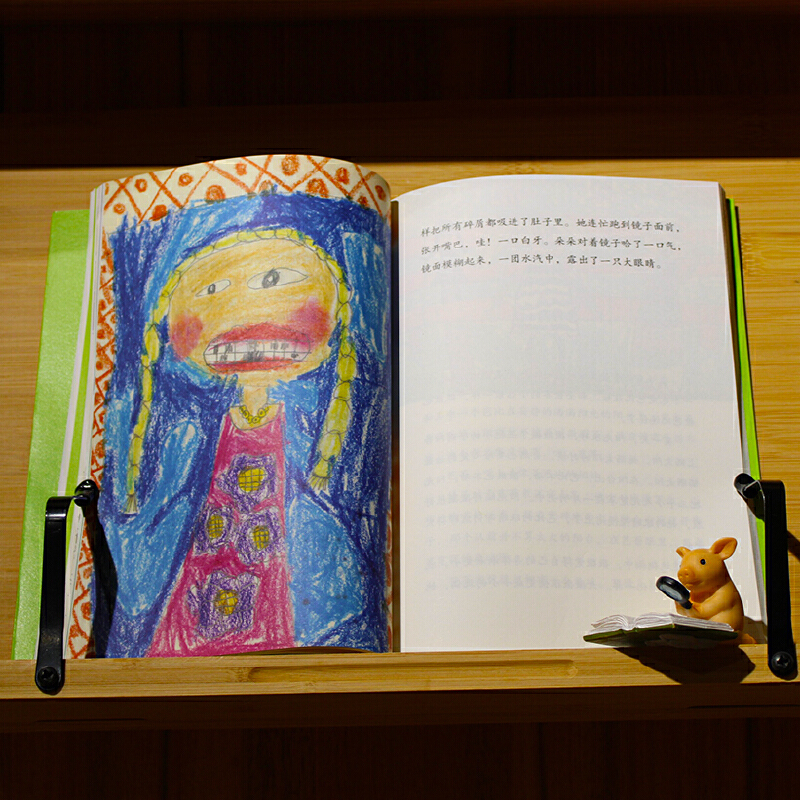 样把所有碎屑都吸进了肚子里。她连忙跑到镜子面前，
张开嘴巴，哇！一口白牙。朵朵对着镜子哈了一口气，
镜面模糊起来，一团水汽中，露出了一只大眼睛。